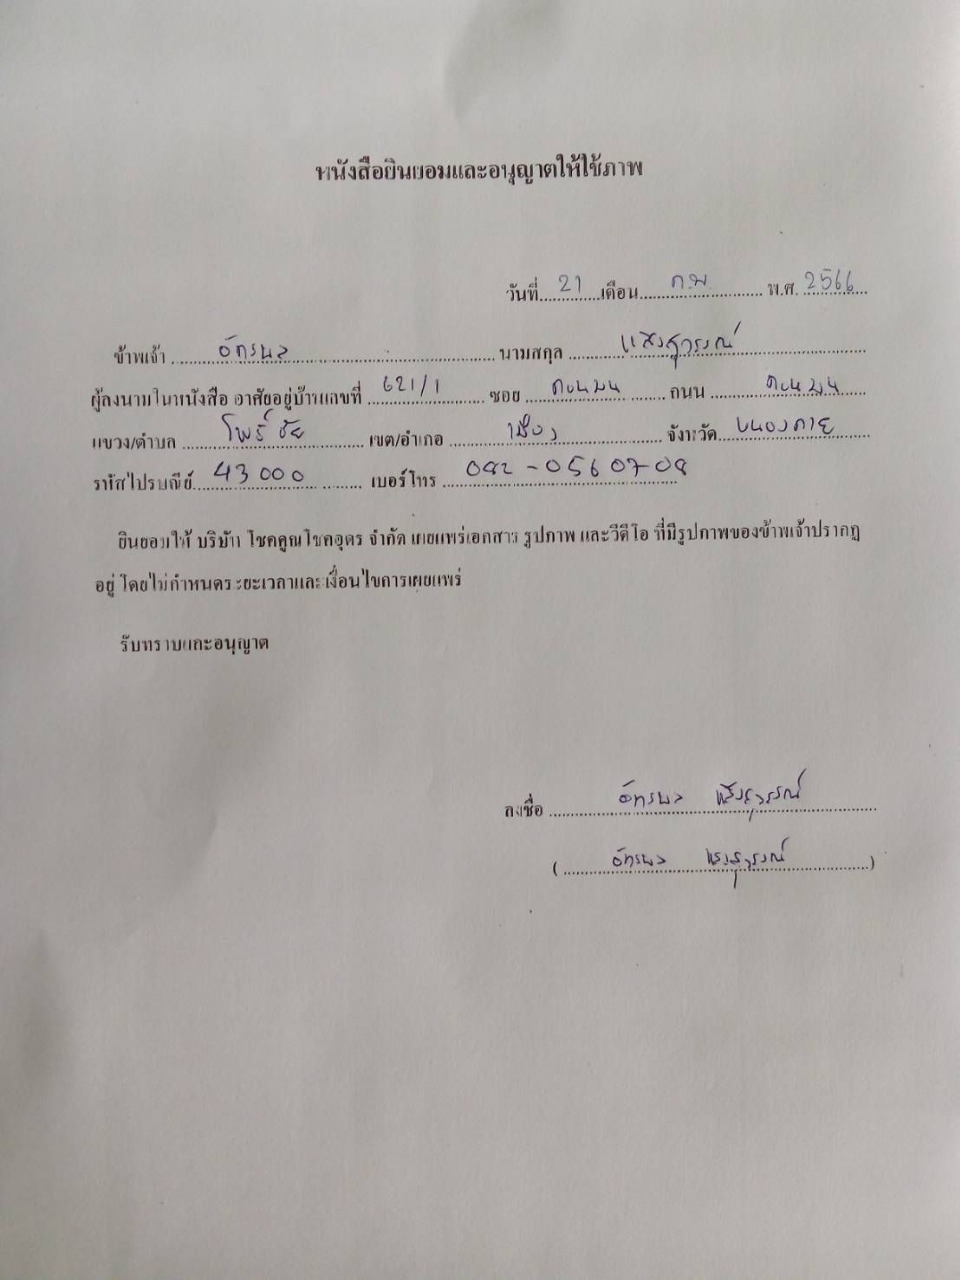 หนังสือยินยอมและอนุญาตให้ใช้ภาพ
วันที่ 21 เดือน ก.พ. พ.ศ. 2566
ข้าพเจ้า อัครพล นามสกุล แสงสุวรรณ์
ผู้ลงนามในหนังสือ อาศัยอยู่บ้านเลขที่ 621/1 ซอย ถนน
แขวง/ตำบล โพธิ์ชัย เขต/อำเภอ เมือง จังหวัด หนองคาย
รหัสไปรษณีย์ 43000 เบอร์โทร 082-0560708
ยินยอมให้ บริษัท โชคคูณโชคอุดร จำกัด เผยแพร่เอกสาร รูปภาพ และวีดีโอ ที่มีรูปภาพของข้าพเจ้าปรากฏ
อยู่ โดยไม่กำหนดระยะเวลาและเงื่อนไขการเผยแพร่
รับทราบและอนุญาต
ลงชื่อ อัครพล แสงสุวรรณ์
( อัครพล แสงสุวรรณ์ )